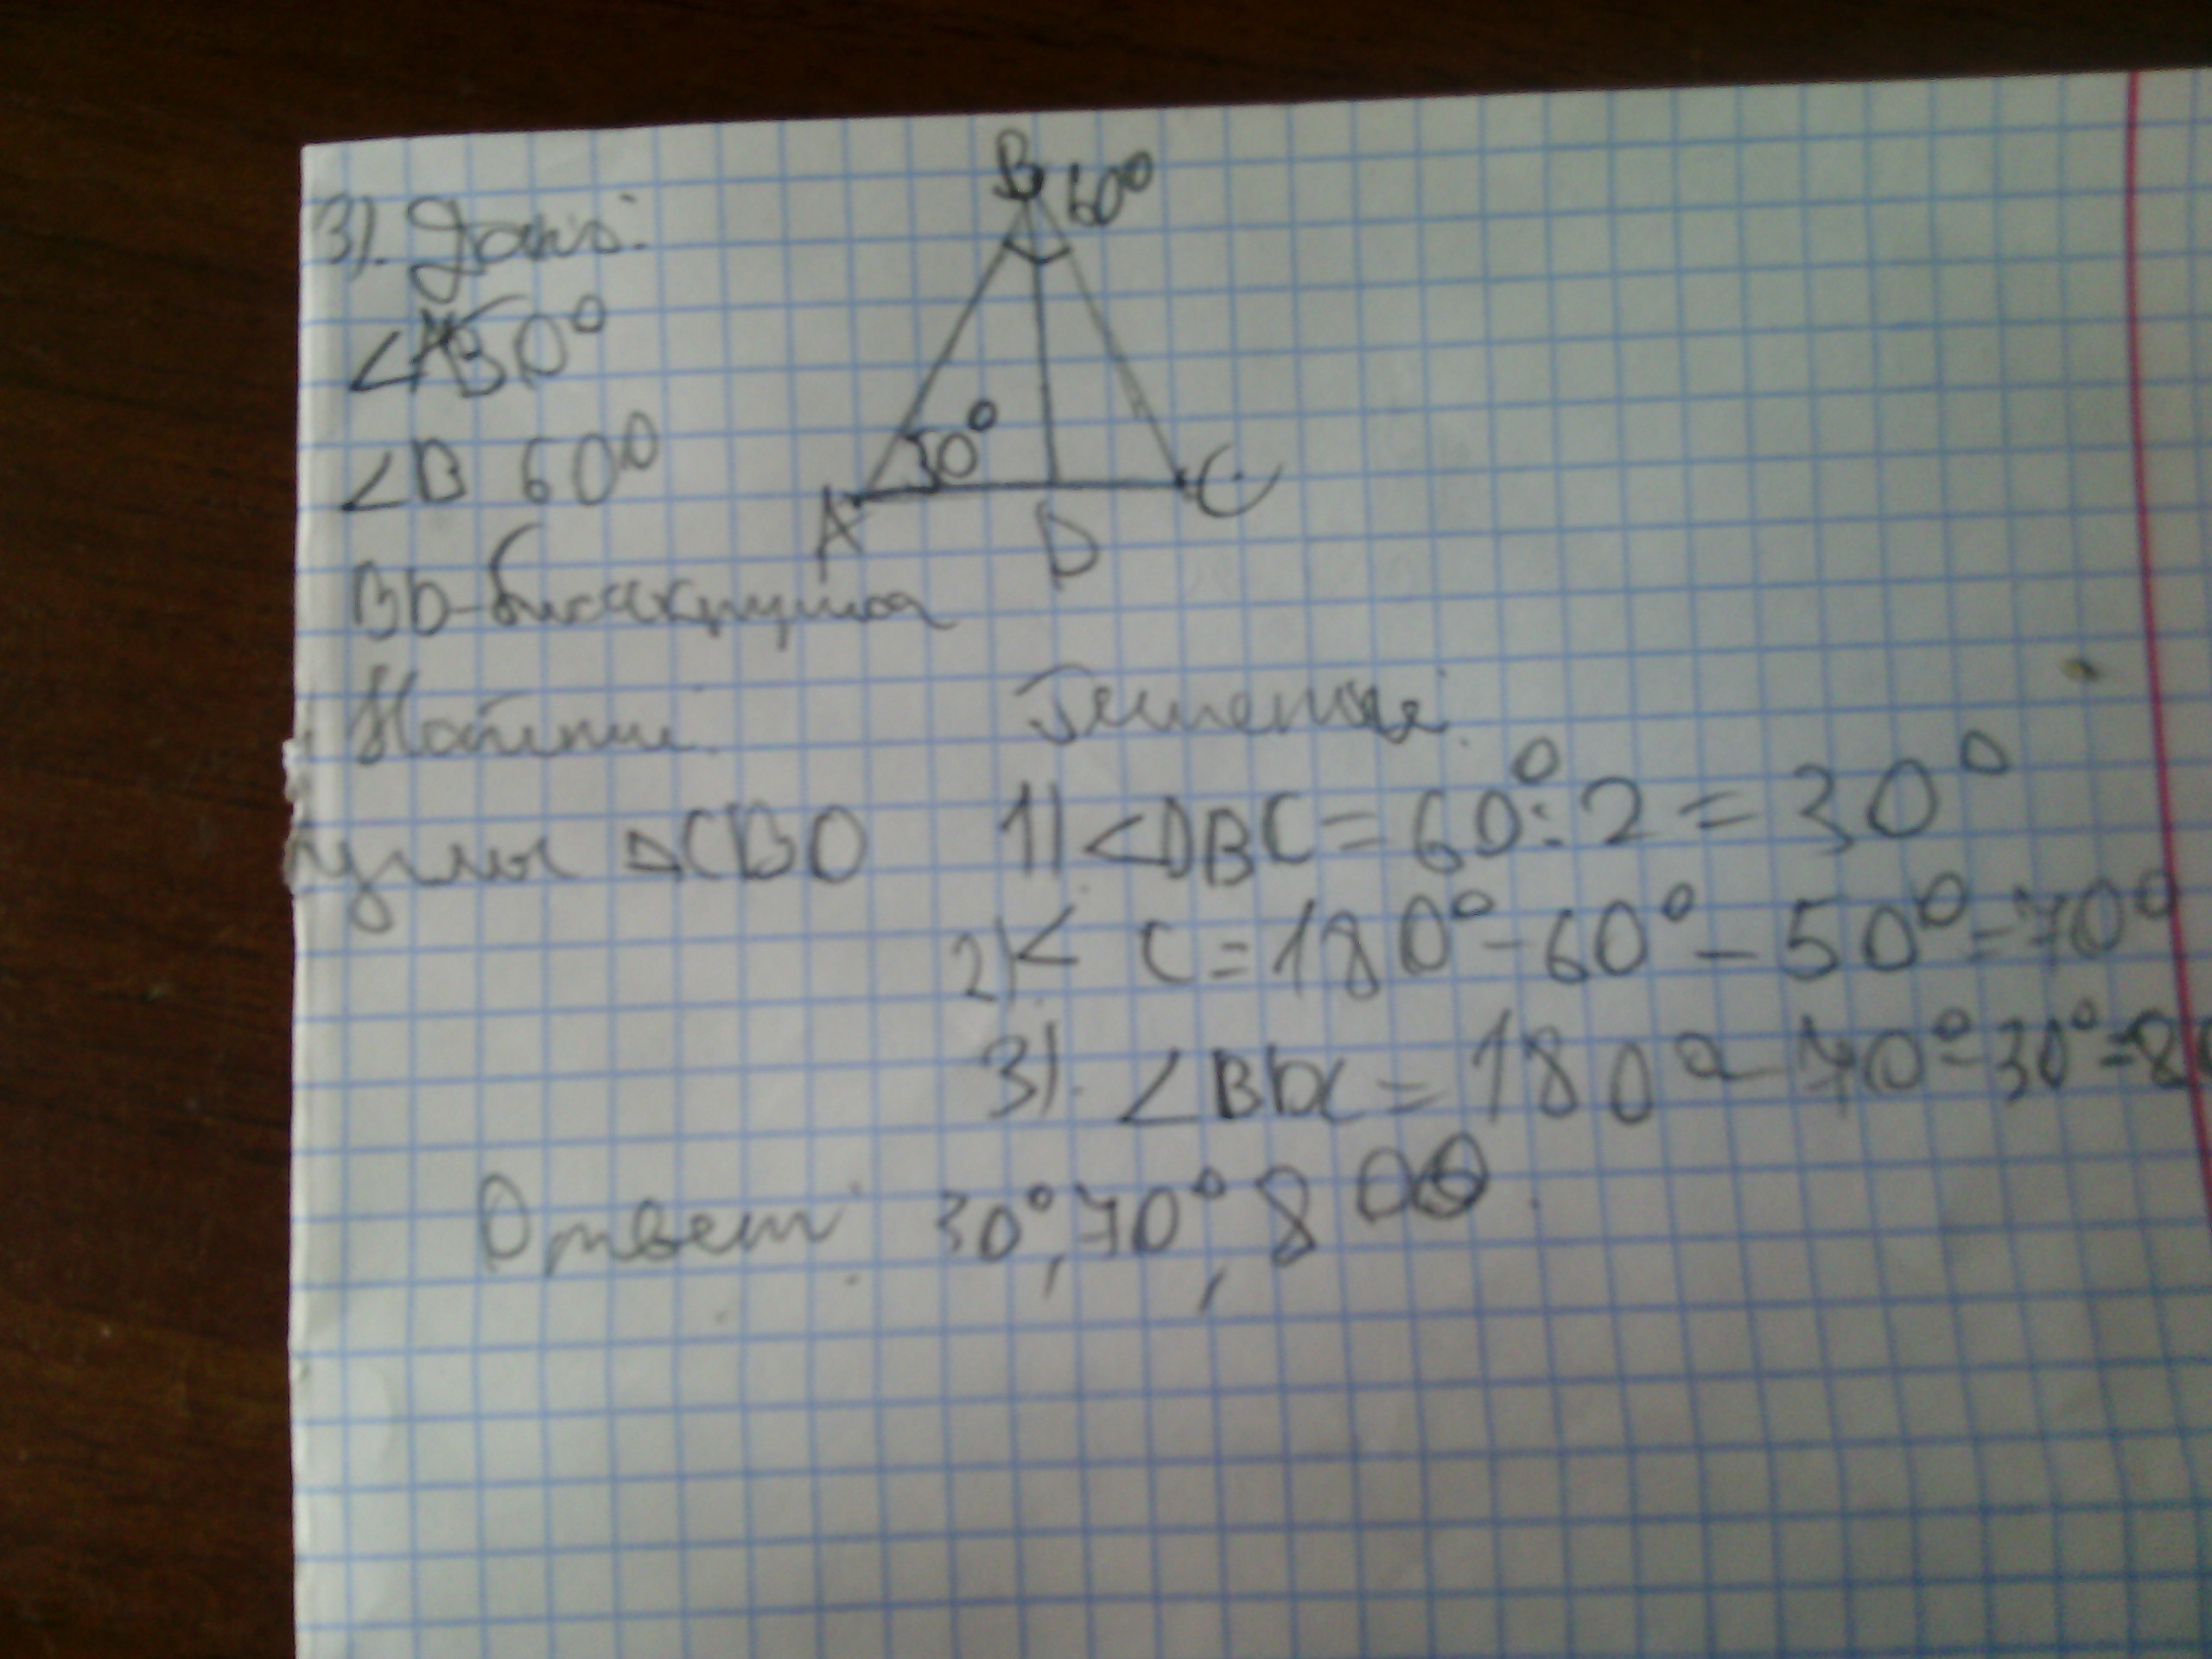 3). Дано:
∠A 50°
∠B 60°
BD - биссектриса
Найти:
углы △CBD
B 60°
50°
A D C
Решение:
1) ∠DBC = 60° : 2 = 30°
2) ∠ C = 180° - 60° - 50° = 70°
3). ∠BDC = 180° - 70° - 30° = 80
Ответ: 30°, 70°, 80°.